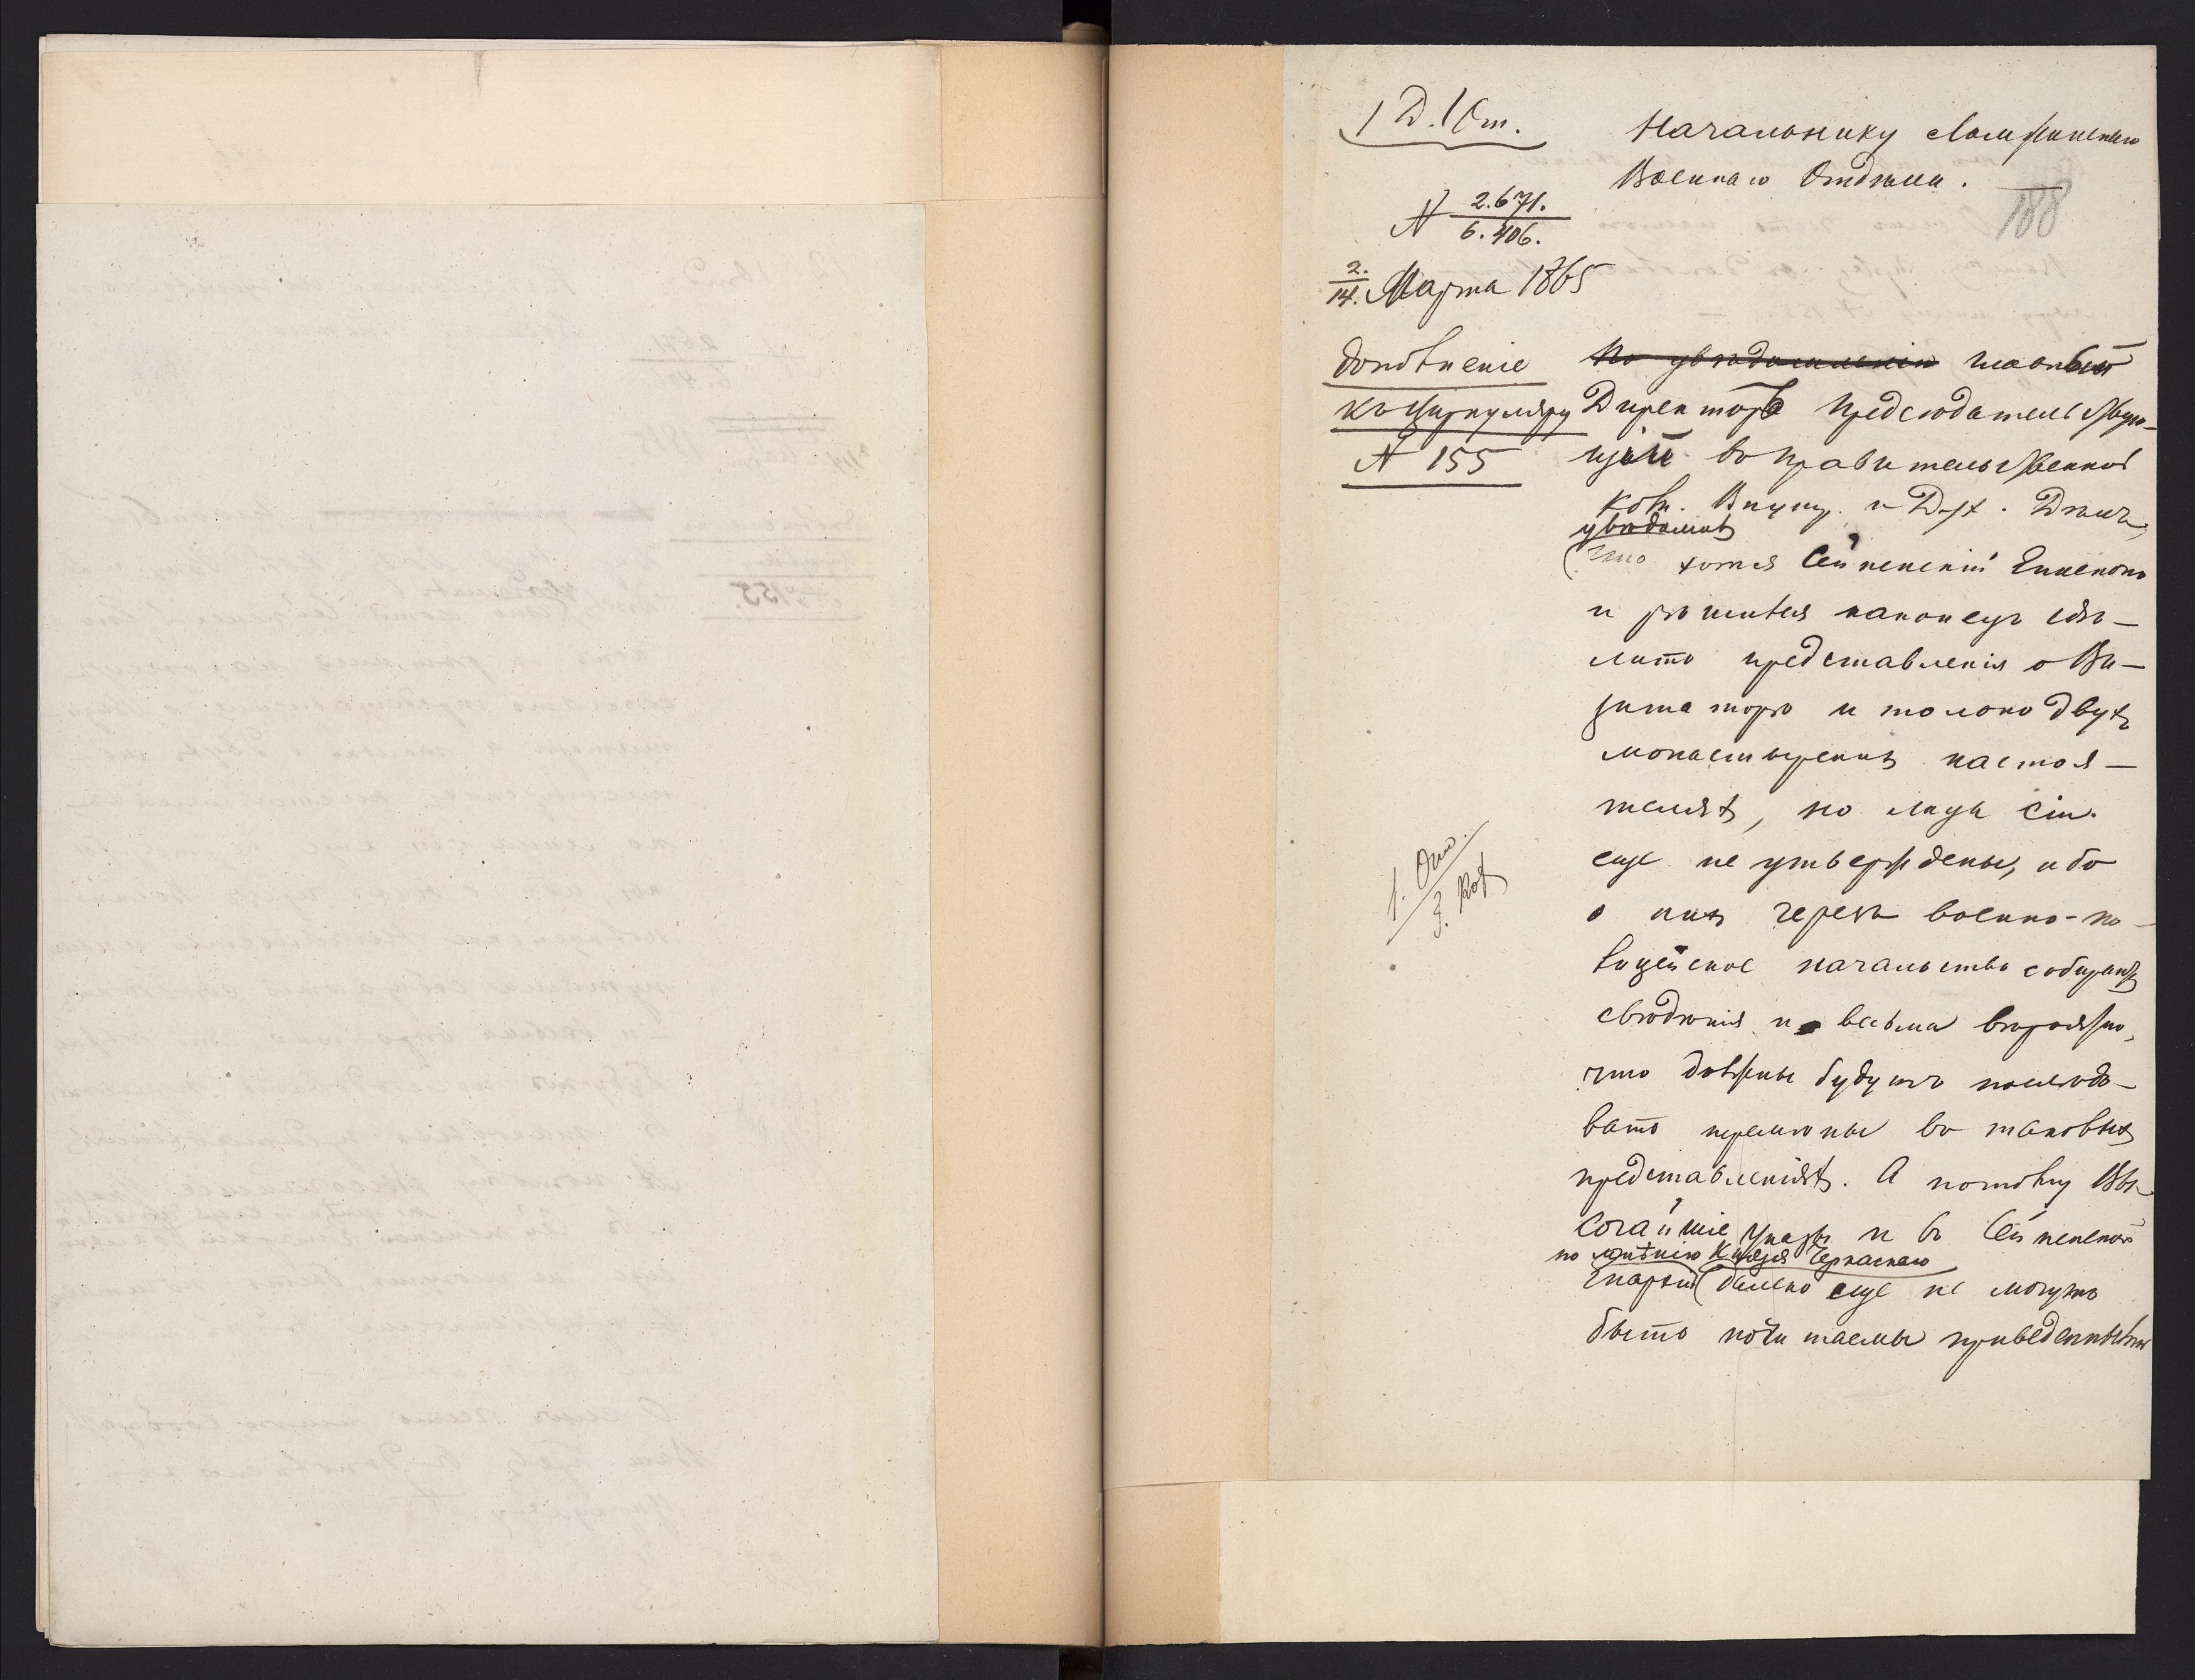 1 Д. 1 От.
Начальнику Ломжинскаго
Военнаго Отдѣла.
188
N 2.671.
6.406.
2.
14. Марта 1865
дополненіе
къ циркуляру
N 155
По увѣдомленію главный
Директоръ Предсѣдательствую-
щій въ Правительственной
Ком. Внутр. и Дух. Дѣлъ,
увѣдомилъ
что хотя Сейненскій Епископъ
и рѣшился наконецъ сдѣ-
лать представленія о Ви-
зитаторѣ и только двухъ
монастырскихъ настоя-
теляхъ, но лица сіи
еще не утверждены, ибо
о нихъ чрезъ военно-по-
лицейское начальство собираются
свѣдѣнія и весьма вѣроятно,
что должны будутъ послѣдо-
вать перемѣны въ таковыхъ
представленіяхъ. А потому Вы-
сочайшіе Указы и въ Сейненской
по мнѣнію Князя Черкаскаго
Епархіи далеко еще не могутъ
быть почитаемы приведенными
1. Отп.
3. Коп.